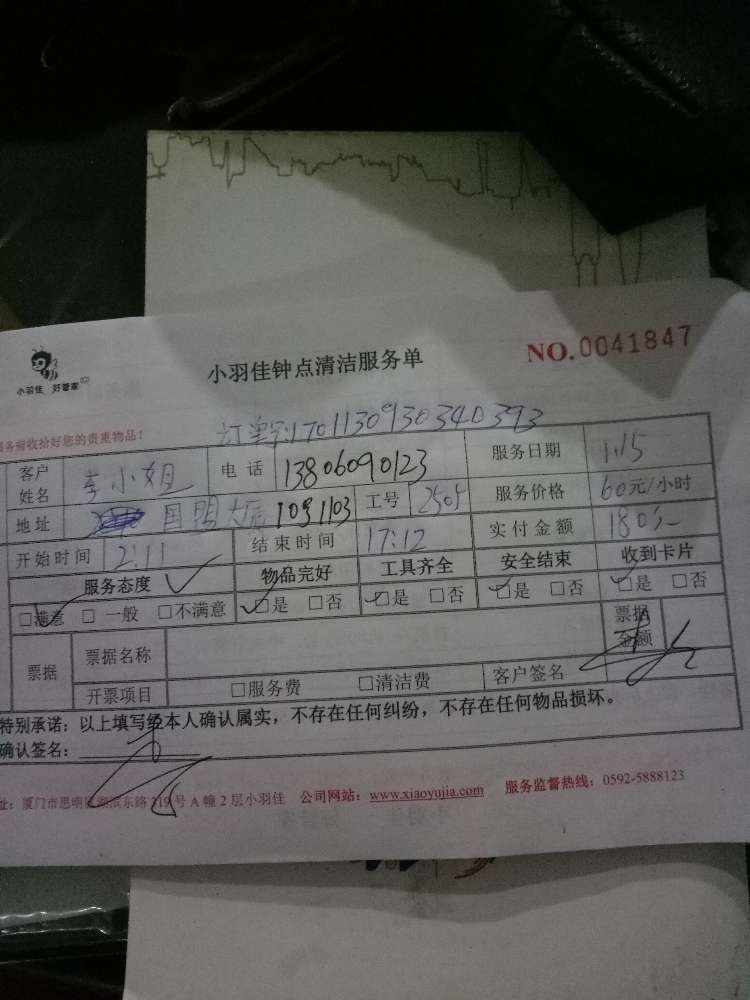 小羽佳 好管家
小羽佳钟点清洁服务单
NO.0041847
务前收拾好您的贵重物品!
1701130930340393
客户姓名 李小姐 电话 13806090123 服务日期 1.15
地址 国贸大厦 1103 工号 2505 服务价格 60元/小时
开始时间 2:11 结束时间 17:12 实付金额 180
服务态度 物品完好 工具齐全 安全结束 收到卡片
□满意 □一般 □不满意 □是 □否 □是 □否 □是 □否 □是 □否
票据 票据名称 票据金额
开票项目 □服务费 □清洁费 客户签名
特别承诺：以上填写经本人确认属实，不存在任何纠纷，不存在任何物品损坏。
确认签名：
址：厦门市思明区湖滨东路319号A幢2层小羽佳 公司网站：www.xiaoyujia.com 服务监督热线：0592-5888123